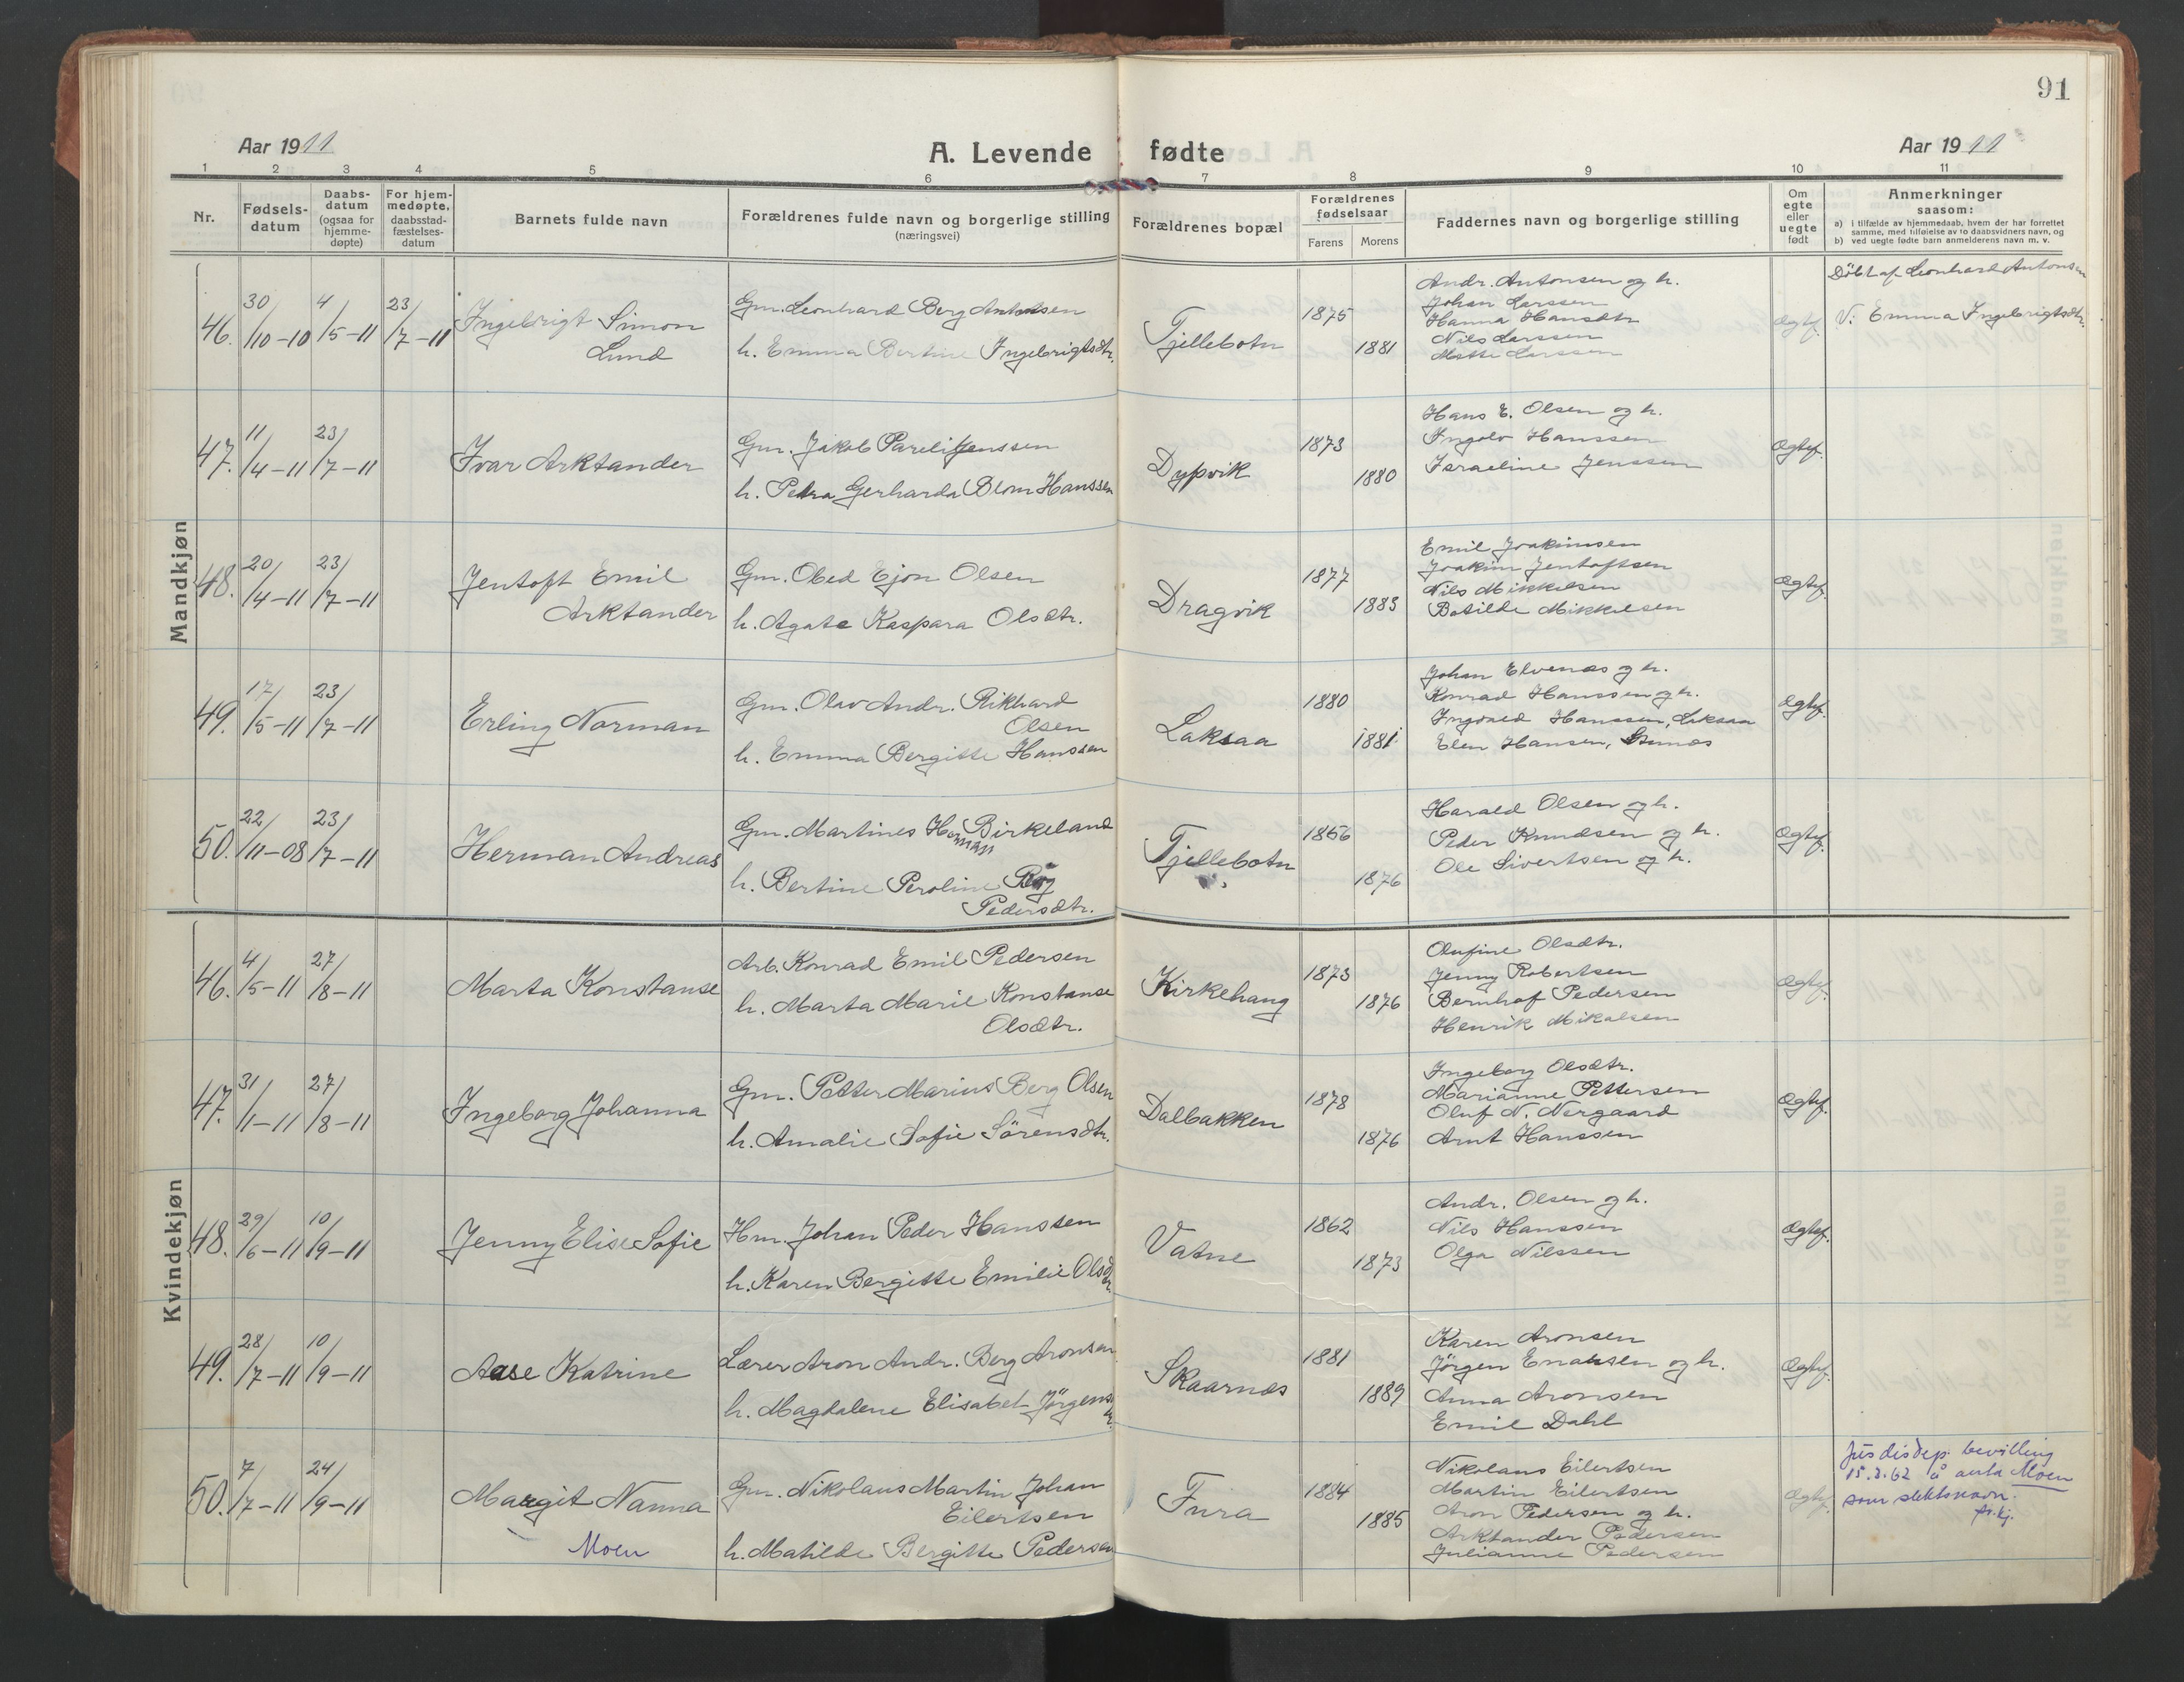 91
Aar 1911
A. Levende fødte
Aar 1911
1 2 3 4 5 6 7 8 9 10 11
Nr.
Fødsels-
datum
Daabs-
datum
(ogsaa for
hjemme-
døpte)
For hjem-
medøpte,
daabsstad-
fæstelses-
datum
Barnets fulde navn
Forældrenes fulde navn og borgerlige stilling
(næringsvei)
Forældrenes bopæl
Forældrenes
fødselsaar
Farens Morens
Faddernes navn og borgerlige stilling
Om
egte
eller
uegte
født
Anmerkninger
saasom:
a) i tilfælde av hjemmedaab, hvem der har forrettet
samme, med tilføielse av to daabsvidners navn, og
b) ved uegte fødte barn anmelderens navn m. v.
Mandkjøn
46. 30/10-10 4/5-11 23/7-11
Ingebrigt Simon
Lund
Gm. Leonhard Berg Antonsen
h. Emma Bertine Ingebrigtsdtr.
Tjellebotn
1875
1881
Andr. Antonsen og h.
Johan Larssen
Hanna Hansdtr
Nils Larssen
Mette Larssen
Ægtef.
Döbt af Leonhard Antonsen
V: Emma Ingebrigtsdtr.
47. 11/4-11 23/7-11
Ivar Arktander
Gm. Jakob Pareli Jenssen
h. Petra Gerharda Blom Hanssen
Dypvik
1873
1880
Hans E. Olsen og h.
Ingolv Hanssen
Israeline Jenssen
Ægtef.
48. 20/4-11 23/7-11
Jentoft Emil
Arktander
Gm. Obed Ejon Olsen
h. Agate Kaspara Olsdtr.
Dragvik
1877
1883
Emil Joakimsen
Joakim Jentoftsen
Nils Mikkelsen
Botilde Mikkelsen
Ægtef.
49. 17/5-11 23/7-11
Erling Norman
Gm. Olav Andr. Rikhard
Olsen
h. Emma Bergitte Hanssen
Laksaa
1880
1881
Johan Elvenæs og h.
Konrad Hanssen og h.
Ingvald Hanssen, Laksaa
Elen Hansen,
Ægtef.
50. 22/11-08 23/7-11
Herman Andreas
Gm. Martines Herman Birkeland
h. Bertine Peroline Berg
Pedersdtr.
Tjellebotn
1866
1876
Harald Olsen og h.
Peder Knudsen og h.
Ole Sivertsen og h.
Ægtef.
Kvindekjøn
46. 4/5-11 27/8-11
Marta Konstanse
Arb. Konrad Emil Pedersen
h. Marta Marie Konstanse
Olsdtr.
Kirkehaug
1873
1876
Olufine Olsdtr.
Jenny Robertsen
Bernhof Pedersen
Henrik Mikalsen
Ægtef.
47. 31/1-11 27/8-11
Ingeborg Johanna
Gm. Petter Marius Berg Olsen
h. Amalie Sofie Sörensdtr.
Dalbakken
1878
1876
Ingeborg Olsdtr.
Marianne Pettersen
Oluf N. Nergaard
Arnt Hanssen
Ægtef.
48. 29/6-11 10/9-11
Jenny Elise Sofie
Hm. Johan Peder Hanssen
h. Karen Bergitte Emilie Olsdtr.
Vatne
1862
1873
Andr. Olsen og h.
Nils Hanssen
Olga Nilssen
Ægtef.
49. 28/7-11 10/9-11
Aase Katrine
Lærer Aron Andr. Berg Aronsen
h. Magdalene Elisabet Jörgensdtr.
Skaarnæs
1881
1889
Karen Aronsen
Jörgen Enoksen og h.
Anna Aronsen
Emil Dahl
Ægtef.
50. 7/7-11 24/9-11
Margit Nanna
Moen
Gm. Nikolaus Martin Johan
Eilertsen
h. Matilde Bergitte Pedersen
Fura
1884
1885
Nikolaus Eilertsen
Martin Eilertsen
Aron Pedersen og h.
Arktander Pedersen
Julianne Pedersen
Ægtef.
Justisdep. bevilling
15.3.62 å anta Moen
som slektsnavn.